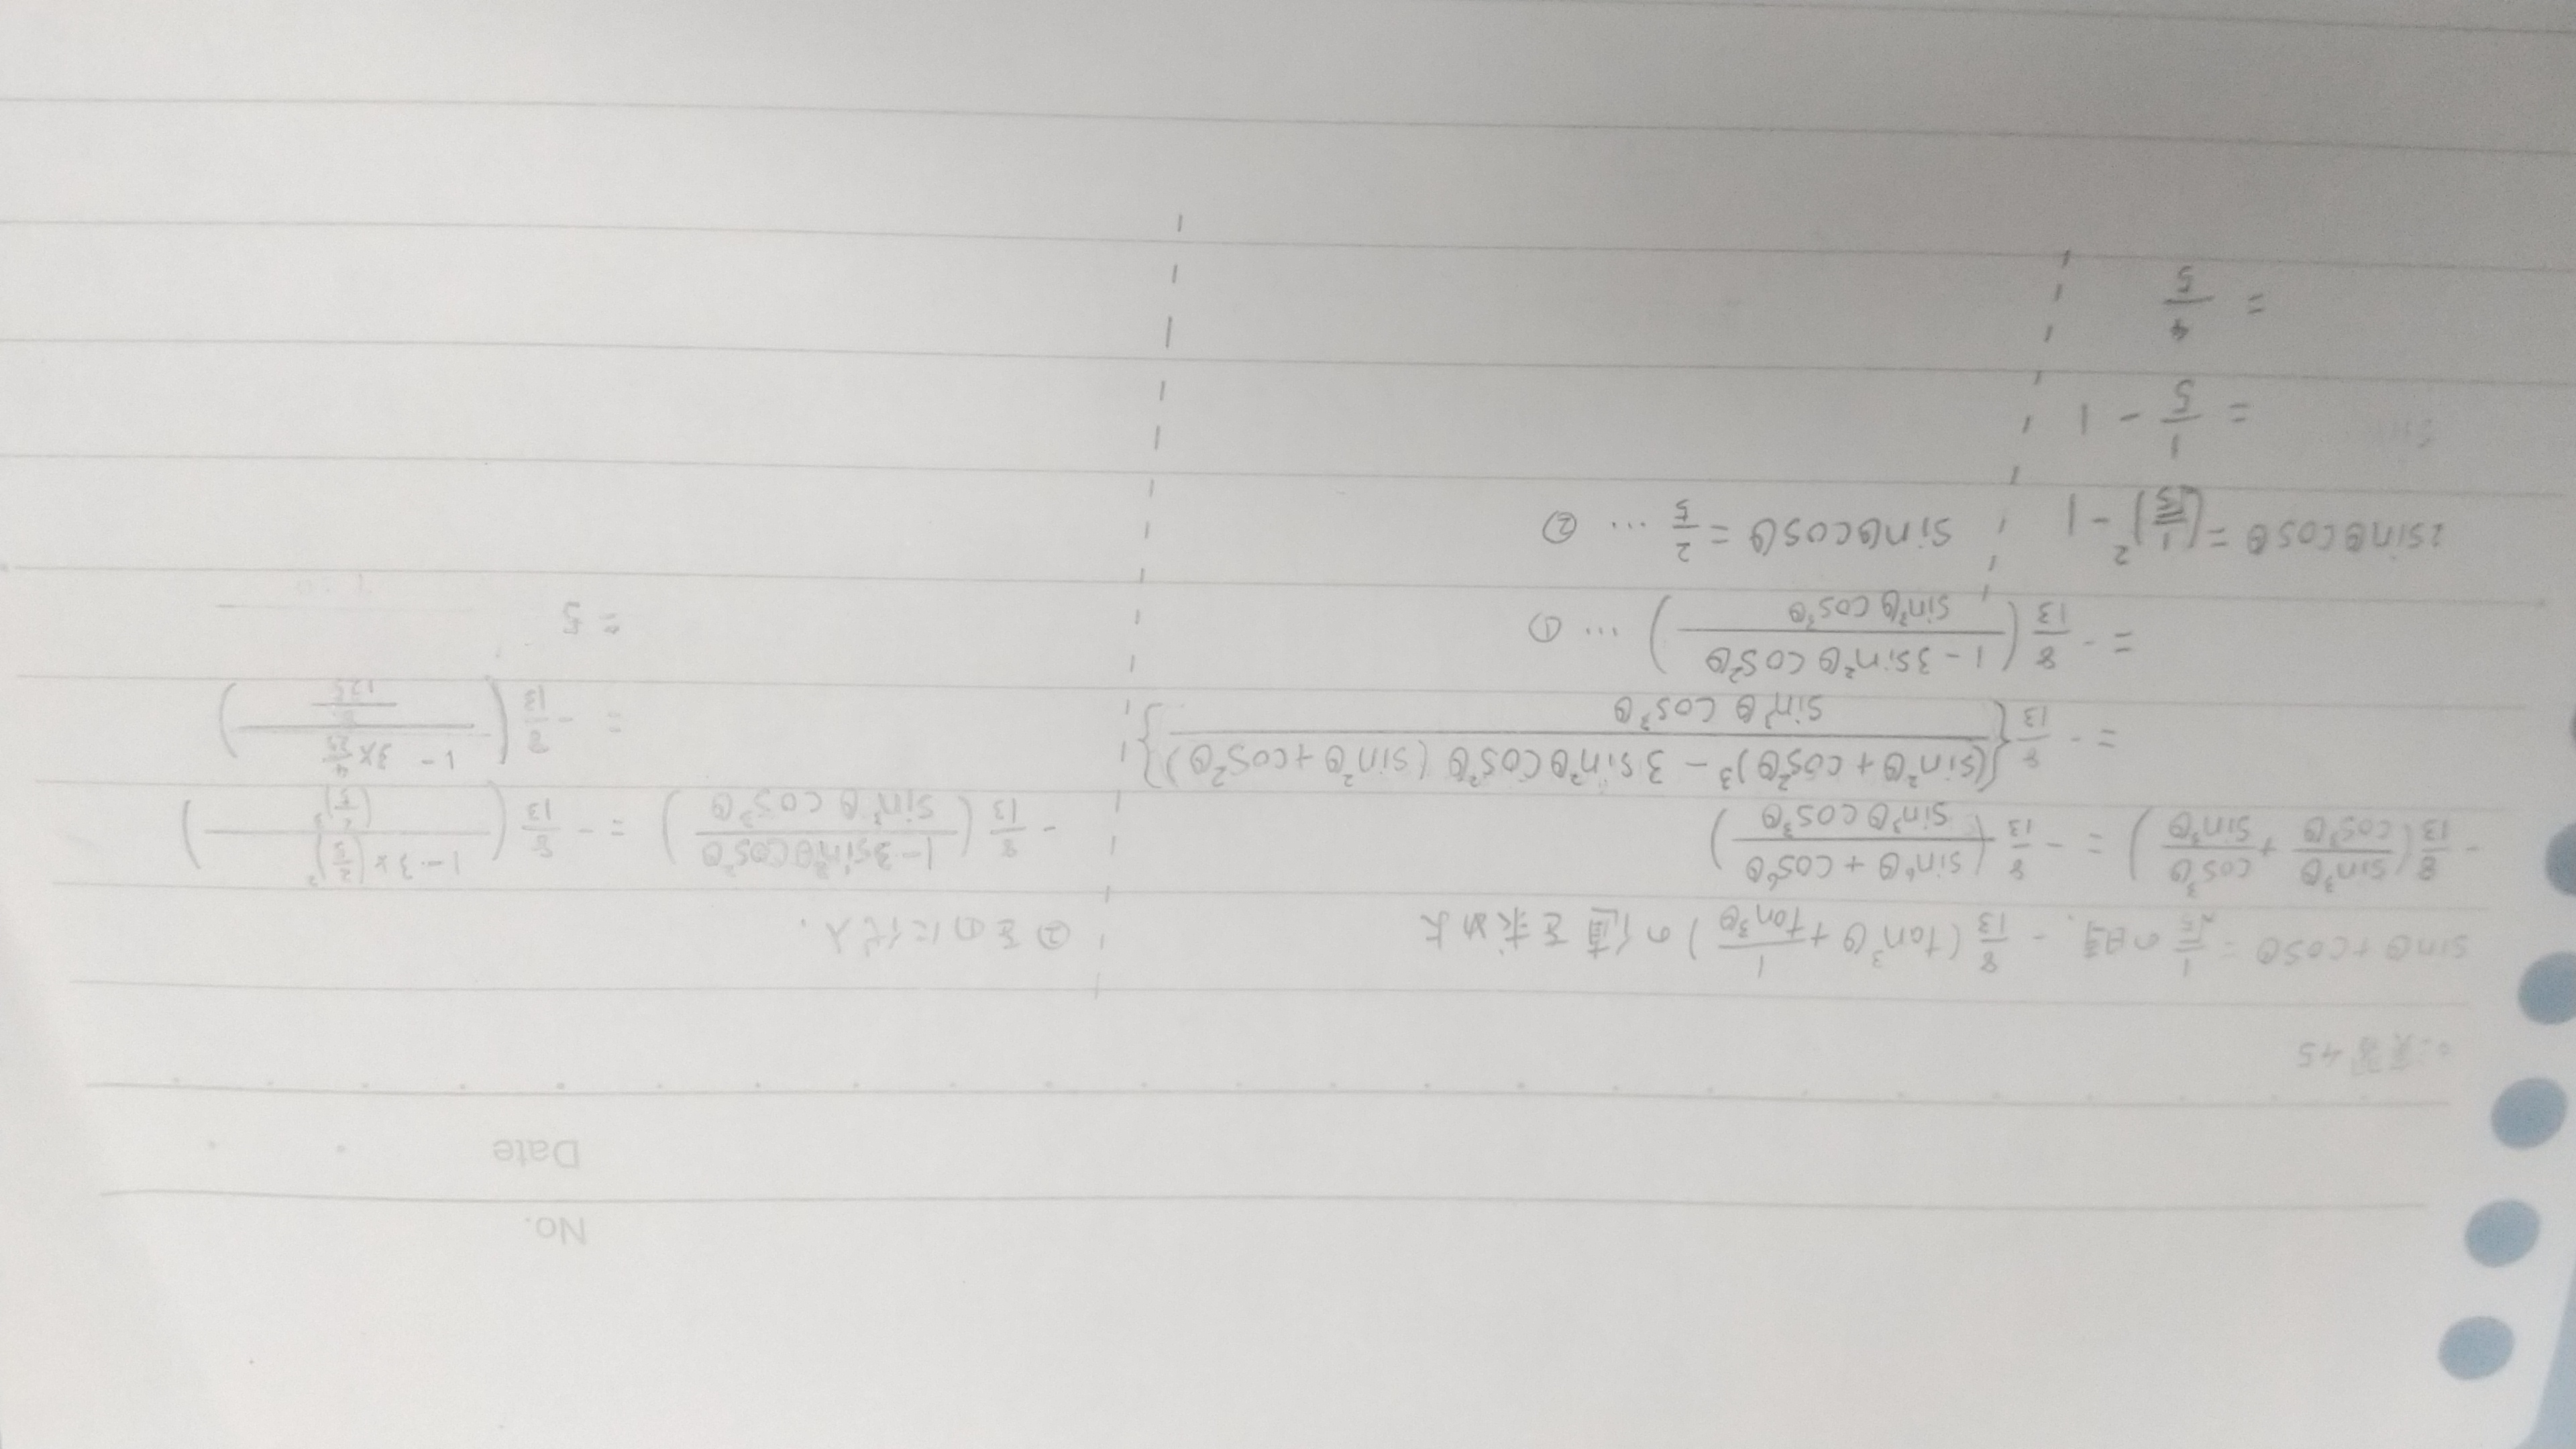 No.
Date
sinθ+cosθ = 1/√5 の時、 - 8/13 (tan³θ + 1/tan³θ) の値を求めよ
- 8/13 (sin³θ/cos³θ + cos³θ/sin³θ) = - 8/13 (sin⁶θ + cos⁶θ / sin³θcos³θ)
= - 8/13 {(sin²θ + cos²θ)³ - 3sin²θcos²θ (sin²θ+cos²θ) / sin³θ cos³θ}
= - 8/13 (1 - 3sin²θ cos²θ / sin³θ cos³θ) … ①
2sinθcosθ = (1/√5)² - 1
= 1/5 - 1
= 4/5
sinθcosθ = 2/5 … ②
②を①に代入.
- 8/13 (1-3sin²θcos²θ / sin³θ cos³θ) = - 8/13 (1-3×(2/5)² / (2/5)³)
= - 8/13 (1 - 3×4/25 / 8/125)
= 5